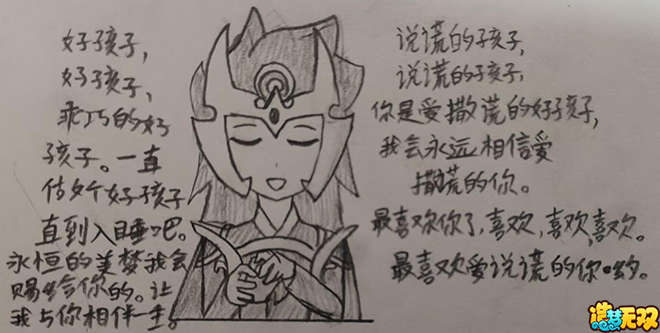 好孩子，
好孩子，
乖巧的好
孩子。一直
做个好孩子
直到入睡吧。
永恒的美梦我会
赐给你的。让
我与你相伴一生。
说谎的孩子，
说谎的孩子，
你是爱撒谎的好孩子，
我会永远相信爱
撒谎的你。
最喜欢你了，喜欢，喜欢，喜欢。
最喜欢爱说谎的你·哟。
造梦无双